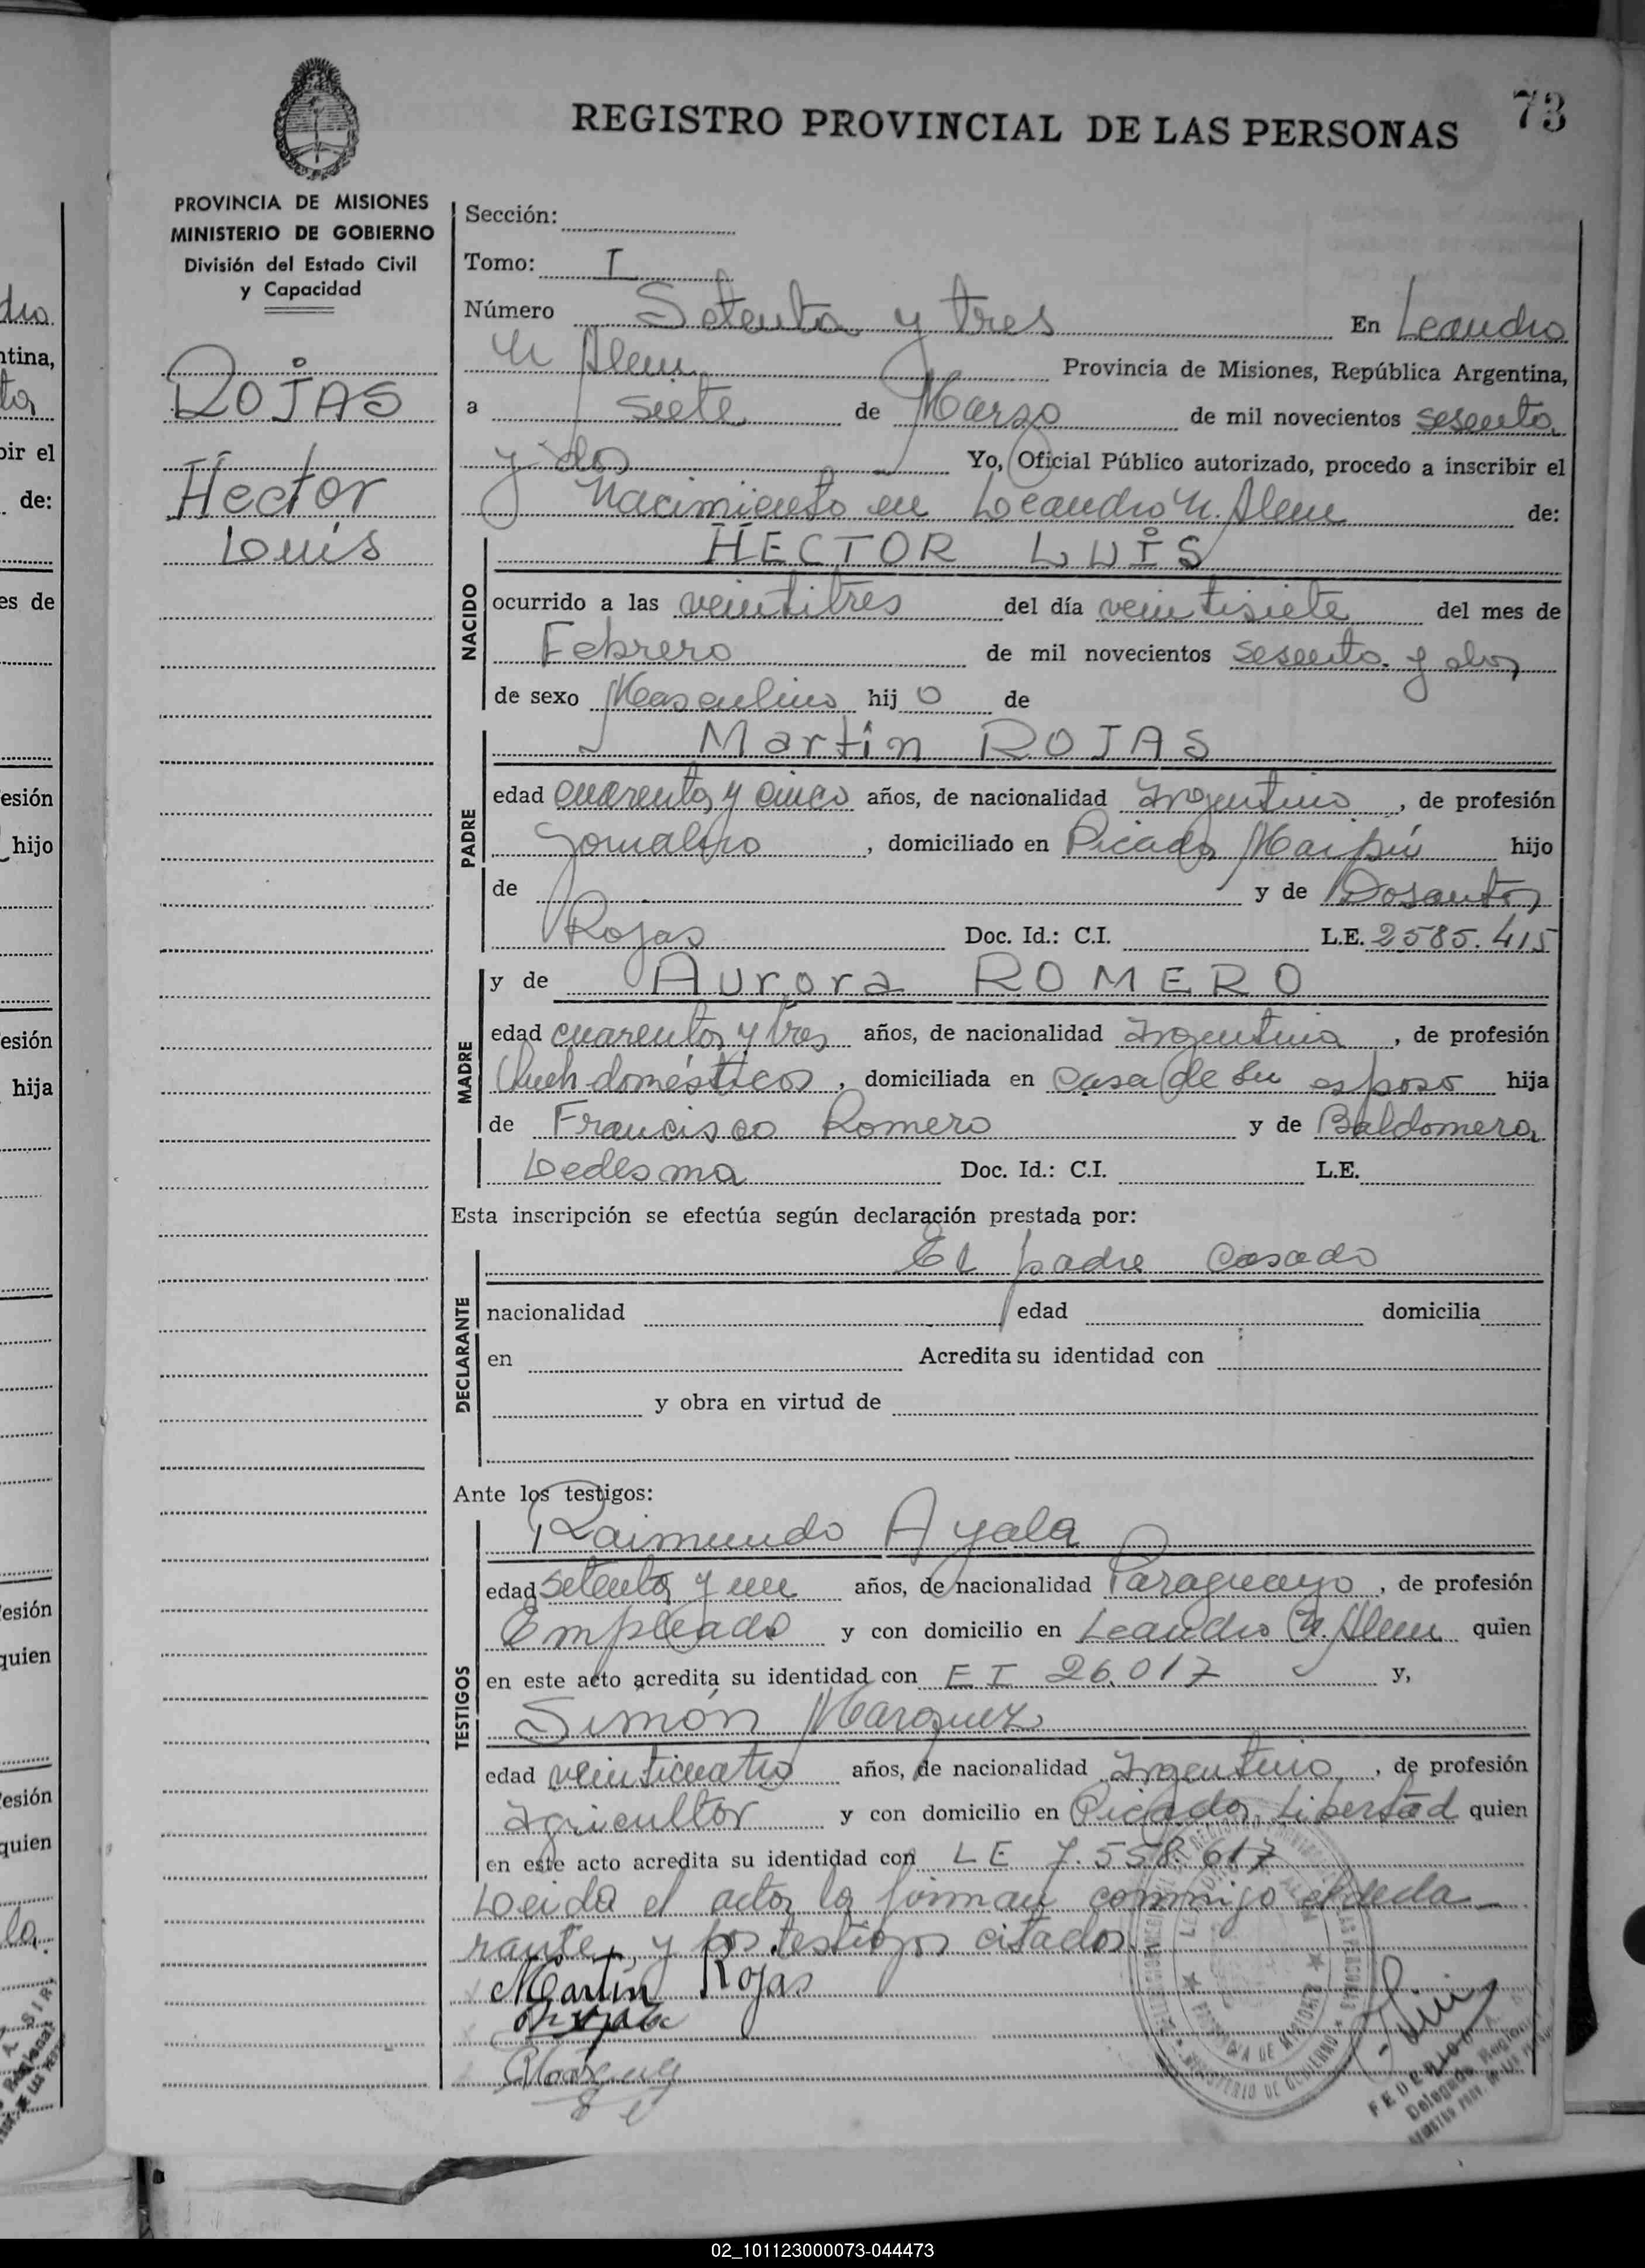 73
REGISTRO PROVINCIAL DE LAS PERSONAS
PROVINCIA DE MISIONES
MINISTERIO DE GOBIERNO
División del Estado Civil
y Capacidad
ROJAS
Hector
Luis
Sección:
Tomo: I
Número Setenta y tres En Leandro
N Alem Provincia de Misiones, República Argentina,
a siete de Marzo de mil novecientos sesenta
y dos Yo, Oficial Público autorizado, procedo a inscribir el
Nacimiento en Leandro N. Alem de:
NACIDO
HECTOR LUIS
ocurrido a las veintitres del día veintisiete del mes de
Febrero de mil novecientos sesenta y dos
de sexo Masculino hij o de
PADRE
Martín ROJAS
edad cuarenta y cinco años, de nacionalidad Argentino, de profesión
Jornalero, domiciliado en Picada Maipú hijo
de y de Dosantos
Rojas Doc. Id.: C.I. L.E. 2585.415
MADRE
y de Aurora ROMERO
edad cuarenta y tres años, de nacionalidad Argentina, de profesión
Queh domésticos, domiciliada en casa de su esposo hija
de Francisco Romero y de Baldomera
Ledesma Doc. Id.: C.I. L.E.
Esta inscripción se efectúa según declaración prestada por:
DECLARANTE
El padre casado
nacionalidad edad domicilia
en Acredita su identidad con
y obra en virtud de
Ante los testigos:
TESTIGOS
Raimundo Ayala
edad setenta y un años, de nacionalidad Paraguayo, de profesión
Empleado y con domicilio en Leandro N. Alem quien
en este acto acredita su identidad con E I 26.017 y,
Simón Marquez
edad veinticuatro años, de nacionalidad Argentino, de profesión
Agricultor y con domicilio en Picada Libertad quien
en este acto acredita su identidad con L E 7.558.617
Leida el acta la firman conmigo el decla
rante, y los testigos citados.
Martín Rojas
02_101123000073-044473